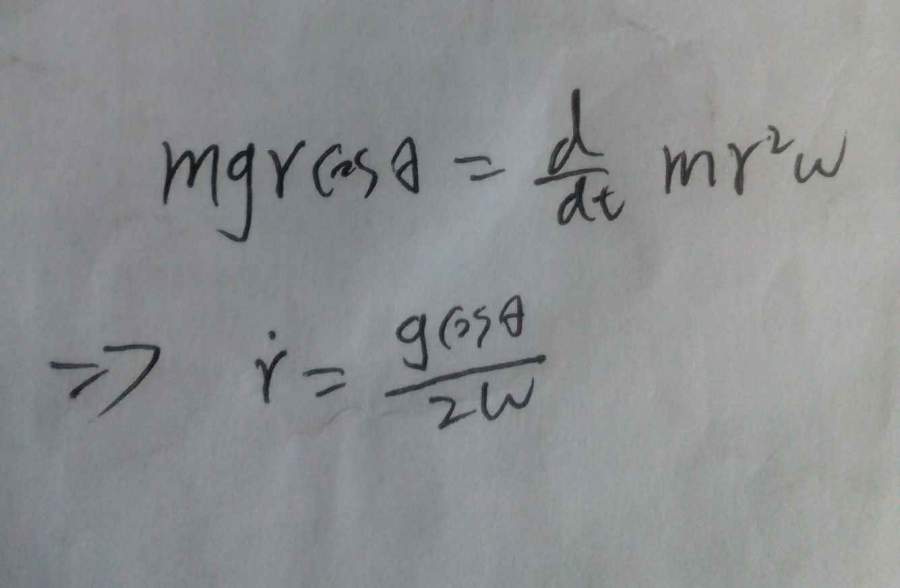 mgr cosθ = d/dt mr²w
=> ṙ = gcosθ/2w